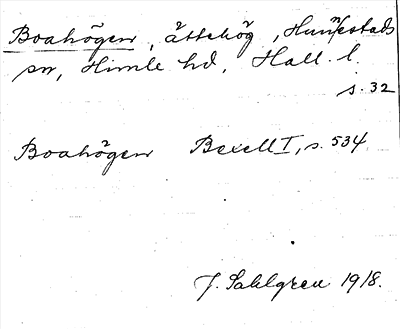 Boahögen, ättehög, Hunnestads
sn, Himle hd, Hall. l.
s. 32
Boahögen Bexell I, s. 534.
J. Sahlgren 1918.